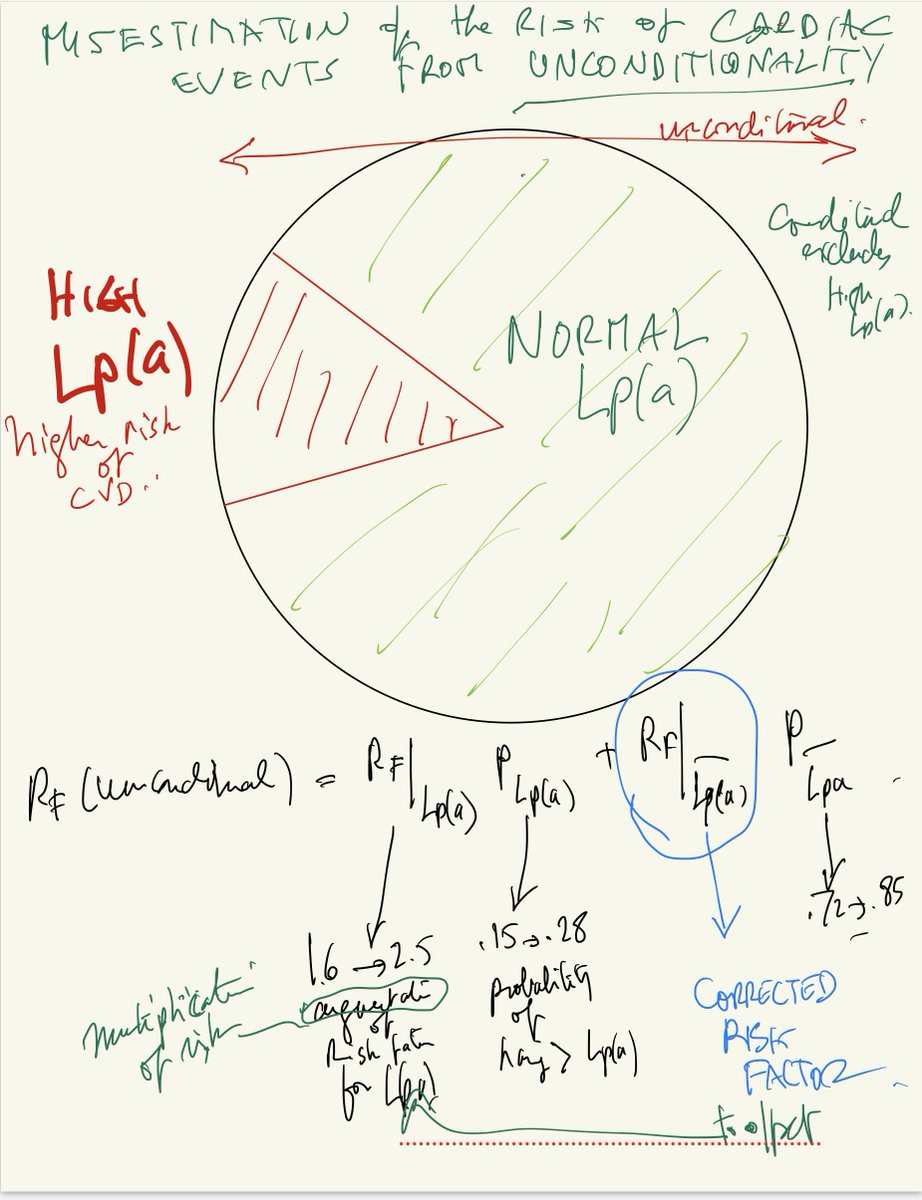 MISESTIMATION of the RISK of CARDIAC
EVENTS FROM UNCONDITIONALITY
unconditional.
Conditional
excludes
High
Lp(a).
HIGH
Lp(a)
higher risk
of
CVD..
NORMAL
Lp(a)
RF (unconditional) = RF|Lp(a) P Lp(a) + RF|L̅p̅(̅a̅)̅ P L̅p̅a̅
1.6 → 2.5
.15 → .28
.72 → .85
Multiplication
of risk
augmentation
of
Risk
for Lp(a)
probability
of
> Lp(a)
CORRECTED
RISK
FACTOR